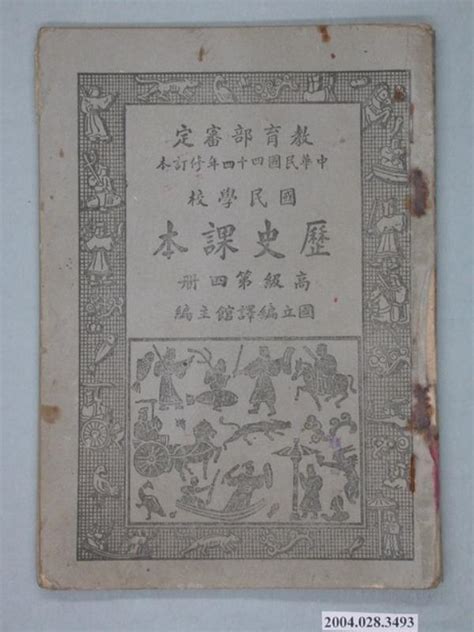 教育部審定
中華民國四十四年修訂本
國民學校
歷史課本
高級第四册
國立編譯館主編
2004.028.3493